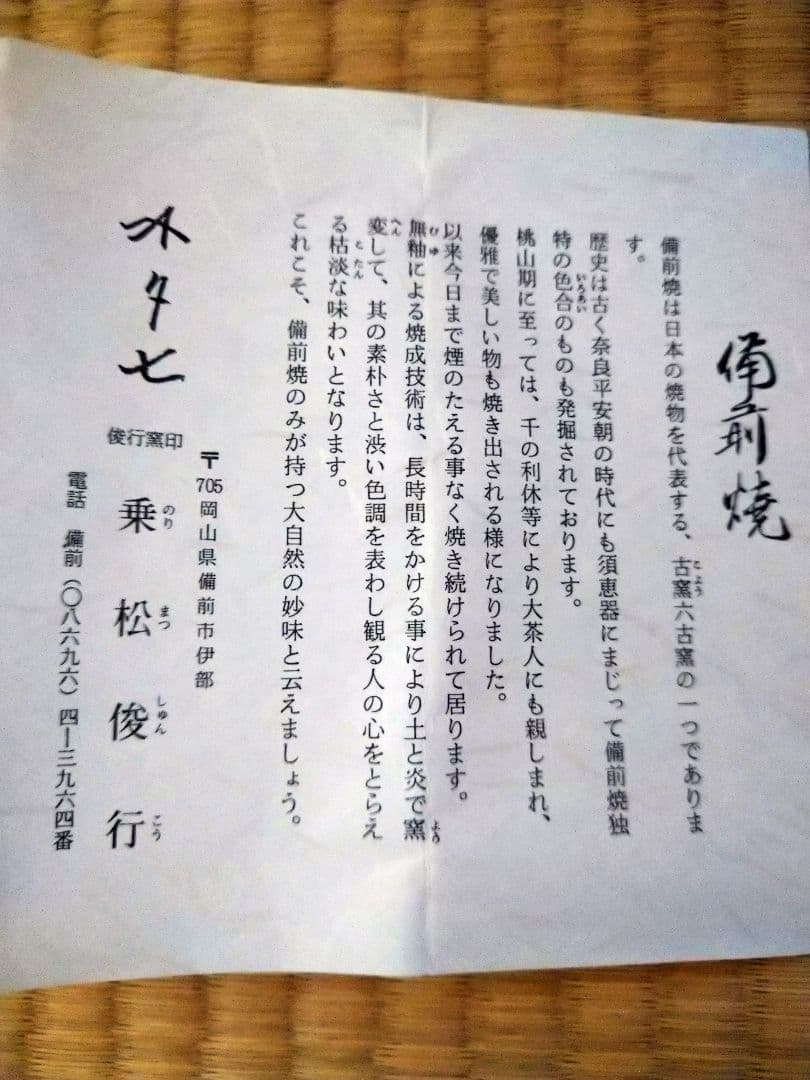 備前焼
備前焼は日本の焼物を代表する、古窯六古窯の一つでありま
とよう
す。
歴史は古く奈良平安朝の時代にも須恵器にまじって備前焼独
特の色合のものも発掘されております。
いろあい
桃山期に至っては、千の利休等により大茶人にも親しまれ、
優雅で美しい物も焼き出される様になりました。
以来今日まで煙のたえる事なく焼き続けられて居ります。
無釉による焼成技術は、長時間をかける事により土と炎で窯
むゆ よう
変して、其の素朴さと渋い色調を表わし観る人の心をとらえ
へん
る枯淡な味わいとなります。
とたん
これこそ、備前焼のみが持つ大自然の妙味と云えましょう。
〒705 岡山県備前市伊部
俊行窯印
乗松俊行
のり まつ しゅん こう
電話 備前(〇八六九六)四―三九六四番